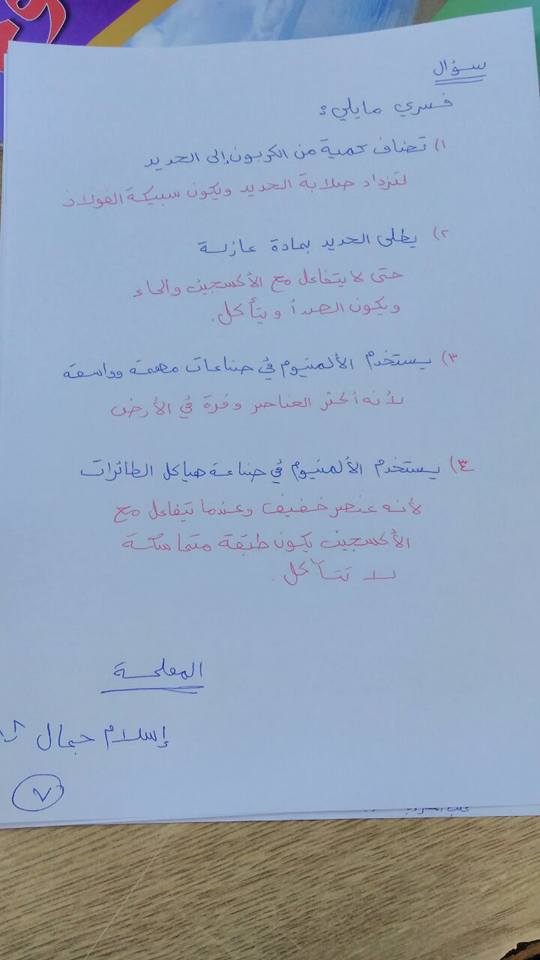 سؤال
فسري مايلي:
١) تضاف كمية من الكربون إلى الحديد
لتزداد صلابة الحديد ويكون سبيكة الفولاذ
٢) يطلى الحديد بمادة عازلة
حتى لا يتفاعل مع الأكسجين والماء
ويكون الصدأ ويتأكل.
٣) يستخدم الألمنيوم في صناعات مهمة وواسعة
لأنه أكثر العناصر وفرة في الأرض
٤) يستخدم الألمنيوم في صناعة هياكل الطائرات
لأنه عنصر خفيف وعندما يتفاعل مع
الأكسجين يكون طبقة متماسكة
لا تتآكل.
المعلمة
إسلام جمال
٧